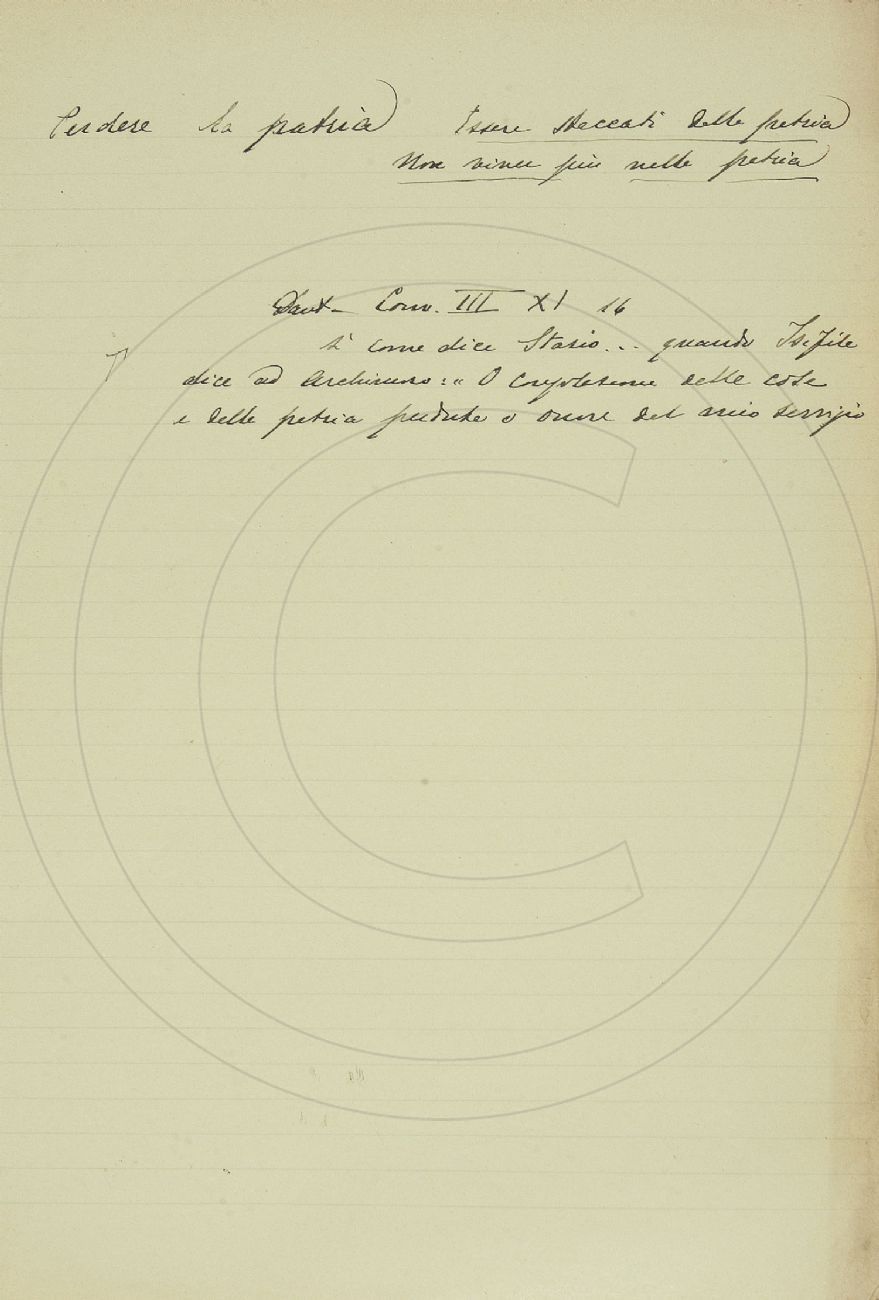 Perdere la patria Essere staccati della patria
Non viver più nella patria
Dant– Conv. III XI 16
sì come dice Stazio... quando Isifile
dice ad Archimoro: "O consolazione delle cose
e della patria perdute o onore del mio servigio